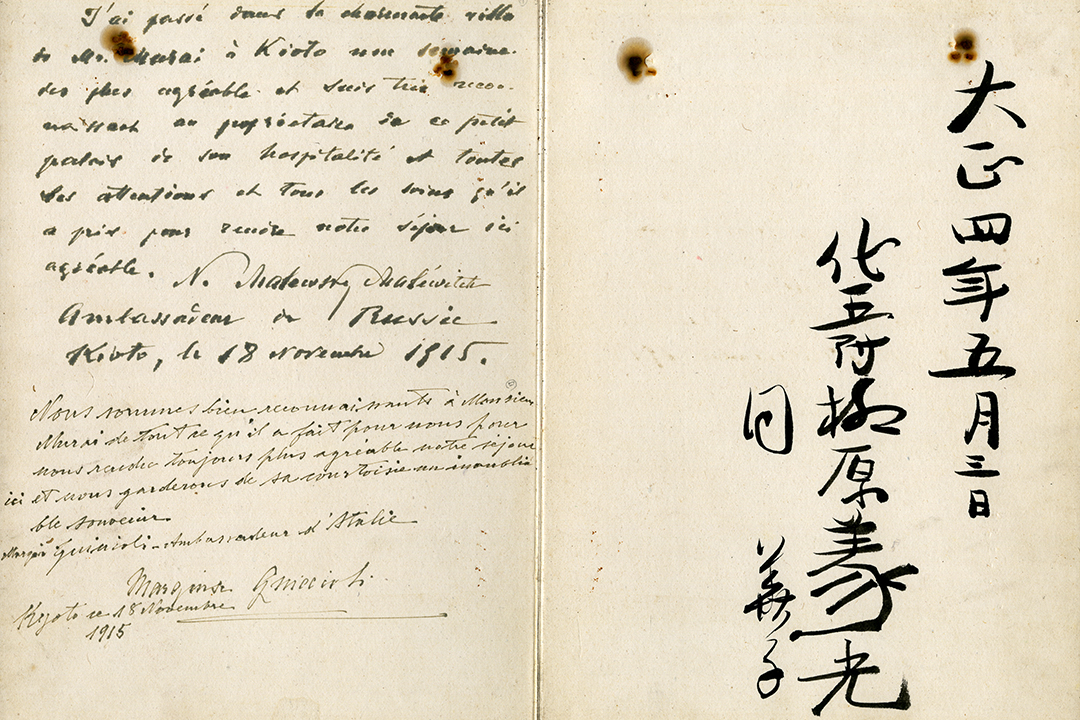 J'ai passé dans la charmante villa
de Mr. Murai à Kioto une semaine
des plus agréable et suis très recon-
naissant au propriétaire de ce petit
palais de son hospitalité et toutes
ses attentions et tous les soins qu'il
a pris pour rendre notre séjour ici
agréable.
N. Malewsky Malévitch
Ambassadeur de Russie
Kioto, le 18 Novembre 1915.
Nous sommes bien reconnaissants à Monsieur
Murai de tout ce qu'il a fait pour nous pour
nous rendre toujours plus agréable notre séjour
ici et nous garderons de sa courtoisie un inoublia-
ble souvenir.
Marquis Guiccioli - Ambassadeur d'Italie
Marquise Guiccioli.
Kyoto ce 18 Novembre
1915
大正四年五月三日
柳原義光
同